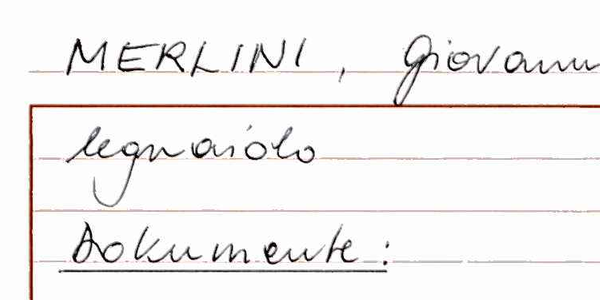 MERLINI, Giovann
legnaiolo
Dokumente: